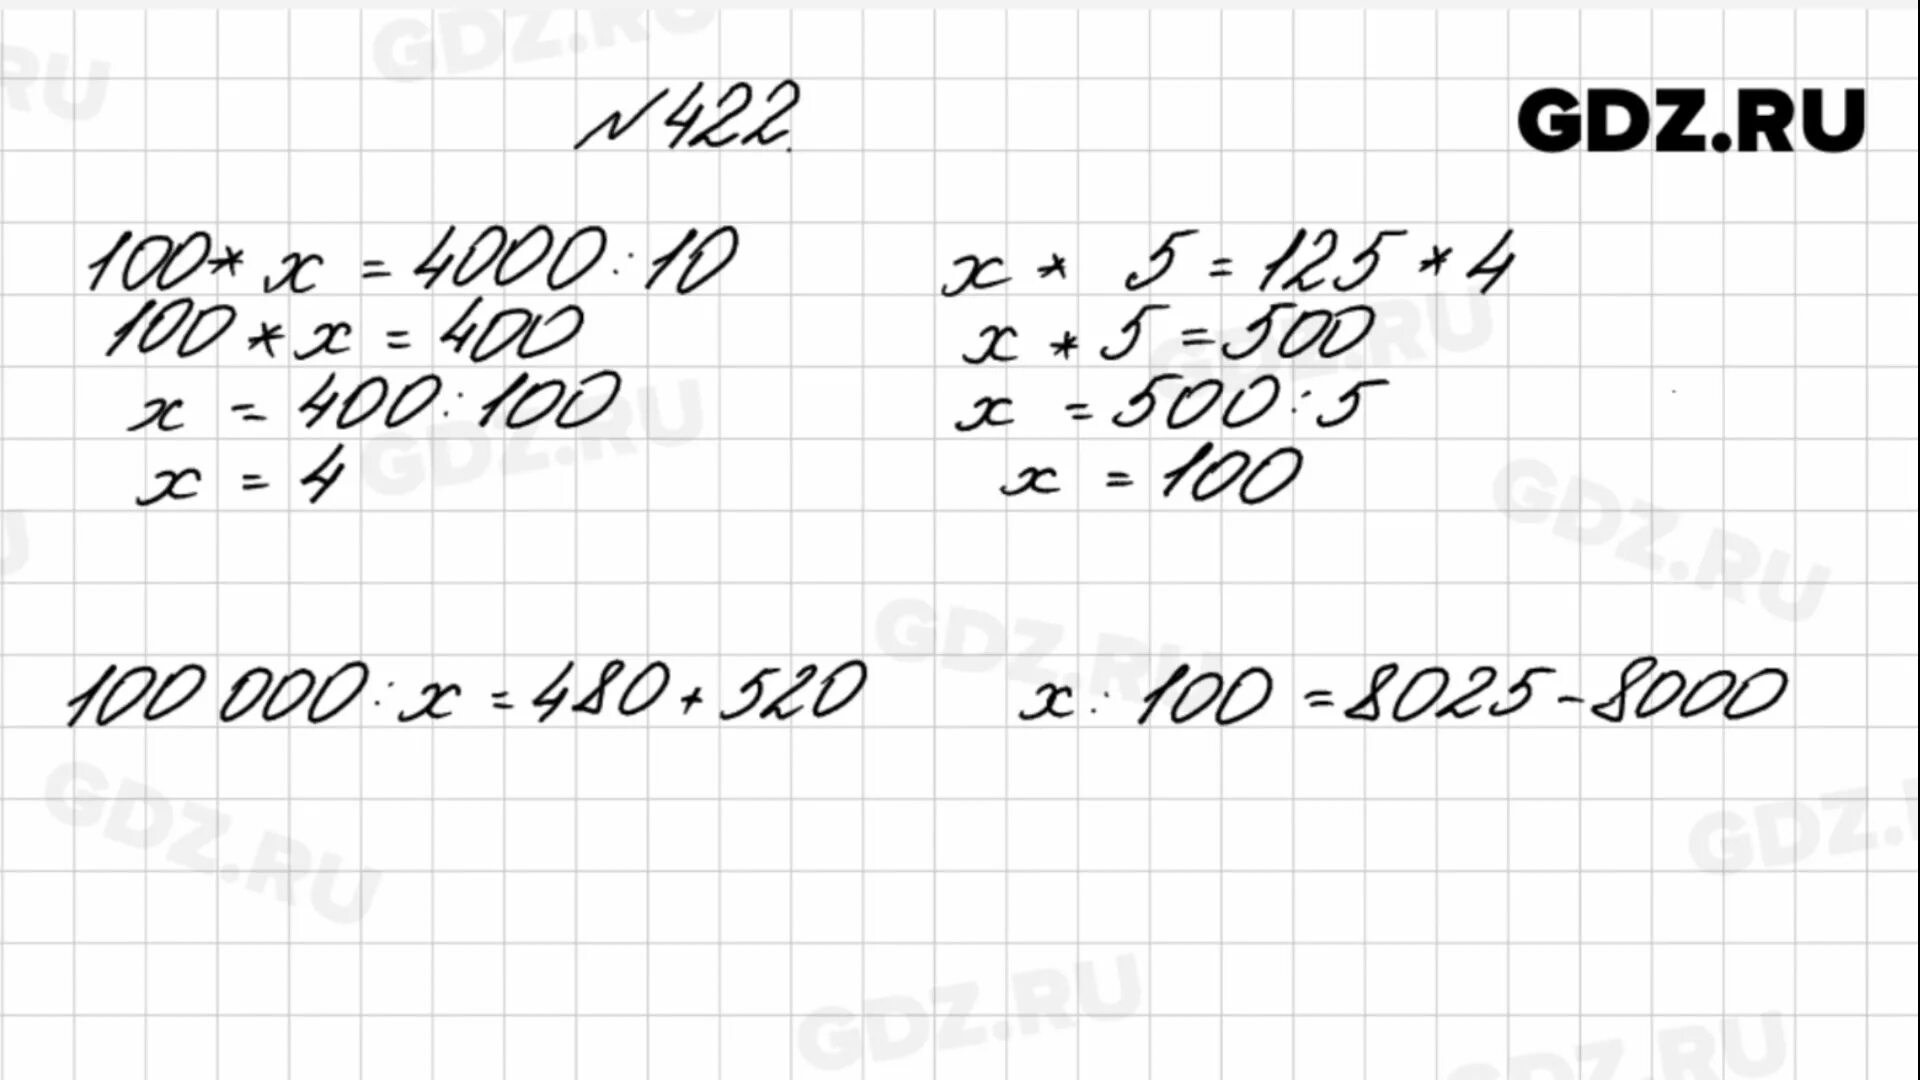 №422.
GDZ.RU
100*x=4000:10
100*x=400
x=400:100
x=4
x*5=125*4
x*5=500
x=500:5
x=100
100 000:x=480+520
x:100=8025-8000